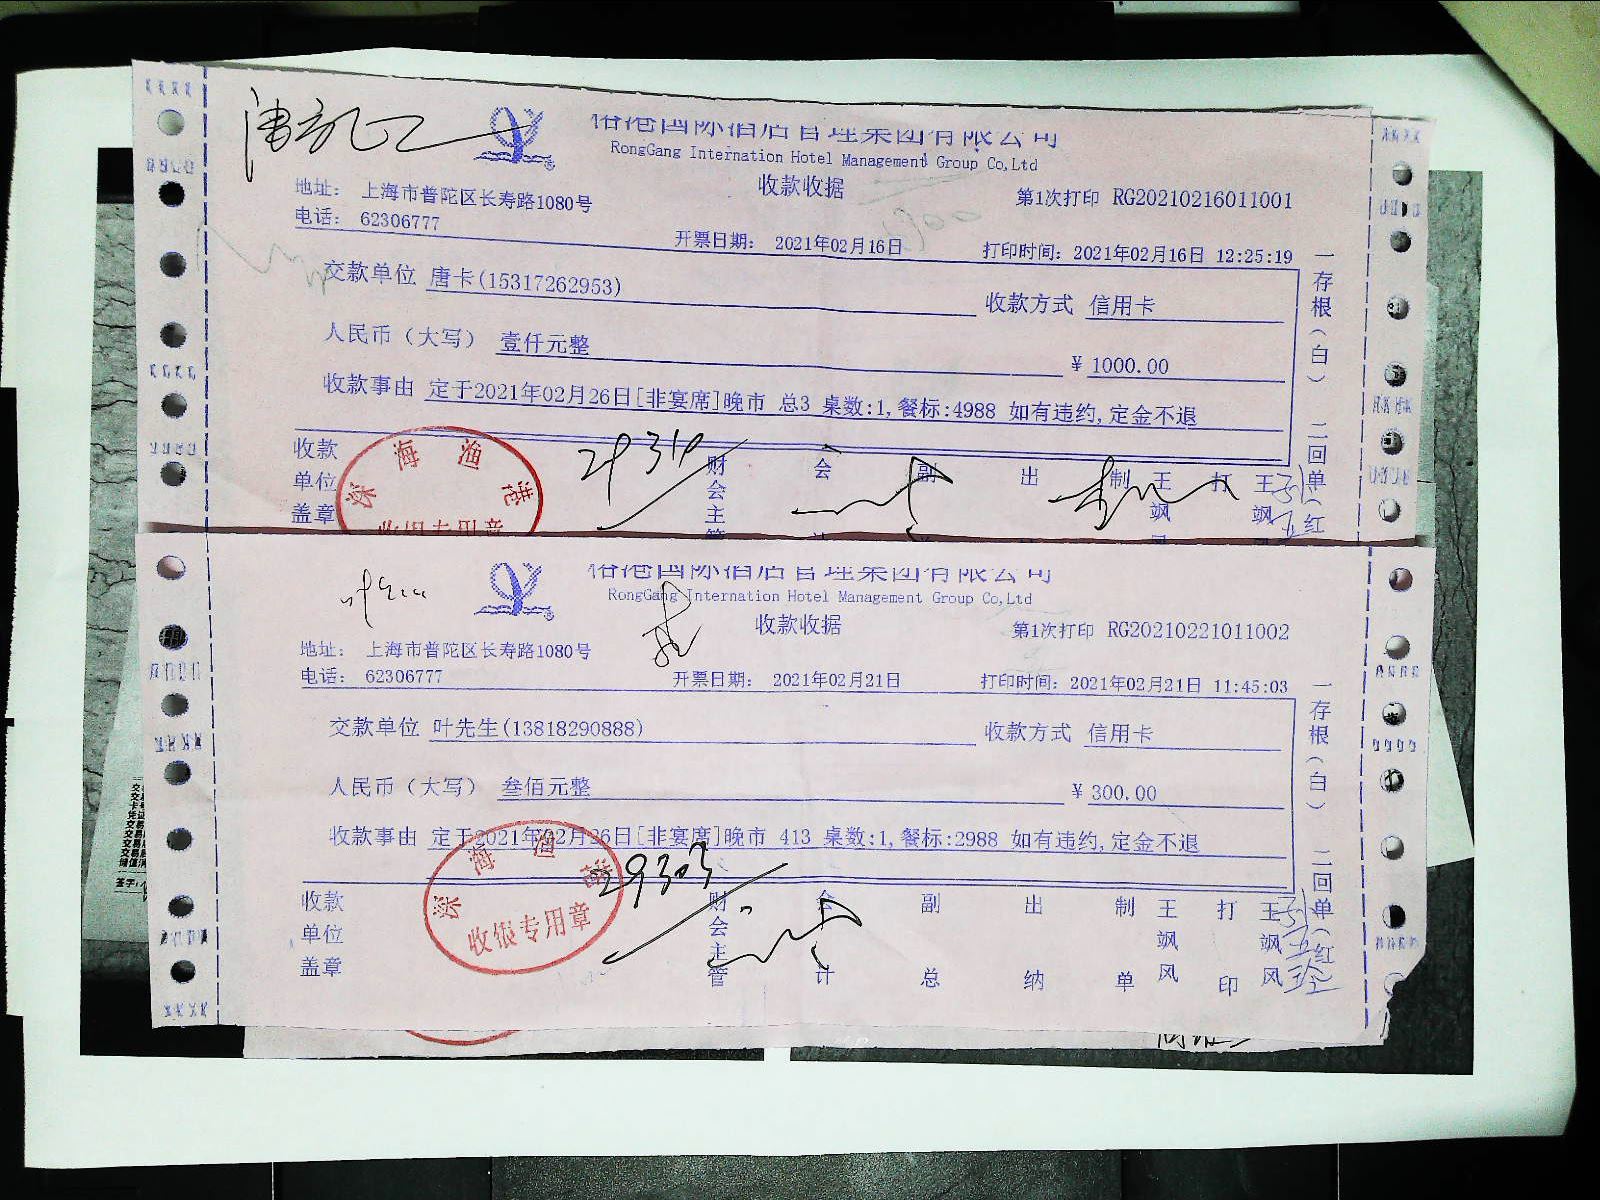 国际酒店管理集团有限公司
RongGang Internation Hotel Management Group Co,Ltd
收款收据
地址： 上海市普陀区长寿路1080号
第1次打印 RG20210216011001
电话： 62306777
开票日期： 2021年02月16日
打印时间：2021年02月16日 12:25:19
交款单位 唐卡(15317262953)
收款方式 信用卡
人民币（大写） 壹仟元整
¥ 1000.00
收款事由 定于2021年02月26日[非宴席]晚市 总3 桌数:1,餐标:4988 如有违约,定金不退
一存根(白) 二回单(红
收款单位盖章
深海渔港
收银专用章
29310
财会主管 会 副 出 制 王飒 打 王飒
国际酒店管理集团有限公司
RongGang Internation Hotel Management Group Co,Ltd
收款收据
第1次打印 RG20210221011002
地址： 上海市普陀区长寿路1080号
电话： 62306777
开票日期： 2021年02月21日
打印时间：2021年02月21日 11:45:03
交款单位 叶先生(13818290888)
收款方式 信用卡
人民币（大写） 叁佰元整
¥ 300.00
收款事由 定于2021年02月26日[非宴席]晚市 413 桌数:1,餐标:2988 如有违约,定金不退
一存根(白) 二回单(红
收款单位盖章
深海渔港
收银专用章
29303
财会主管 会计 副总 出纳 制单 王飒风 打印 王飒风
签字: